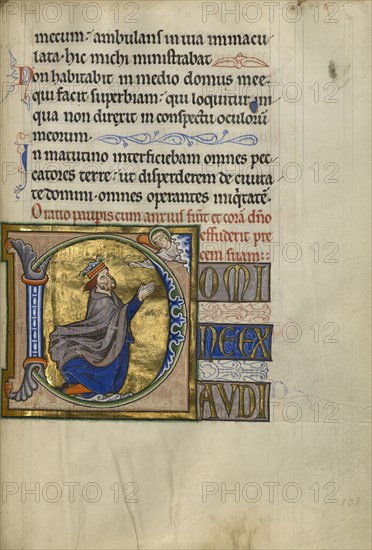 mecum: ambulans in uia immacu
lata. hic michi ministrabat
Non habitabit in medio domus mee.
qui facit superbiam. qui loquitur in
qua non direxit in conspectu oculorũ
meorum.
In matutino interficiebam omnes pec
catores terre: ut disperderem de ciuita
te domini. omnes operantes iniq̃tatẽ.
Oratio paupis cum anxius fuerit et corã dño
effuderit pre
cem suam.
D OMI
NE EX
AUDI
103
PHOTO 12